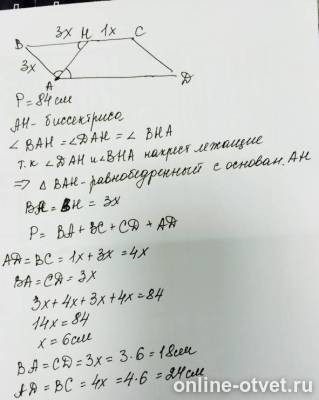 3x H 1x C
B
3x
A D
P = 84 см
AH - биссектриса
∠BAH = ∠DAH = ∠BHA
т.к ∠DAH и ∠BHA накрест лежащие
⇒ △ BAH - равнобедренный с основан. AH
BA = BH = 3x
P = BA + BC + CD + AD
AD = BC = 1x + 3x = 4x
BA = CD = 3x
3x + 4x + 3x + 4x = 84
14x = 84
x = 6см
BA = CD = 3x = 3·6 = 18см
AD = BC = 4x = 4·6 = 24см
online-otvet.ru